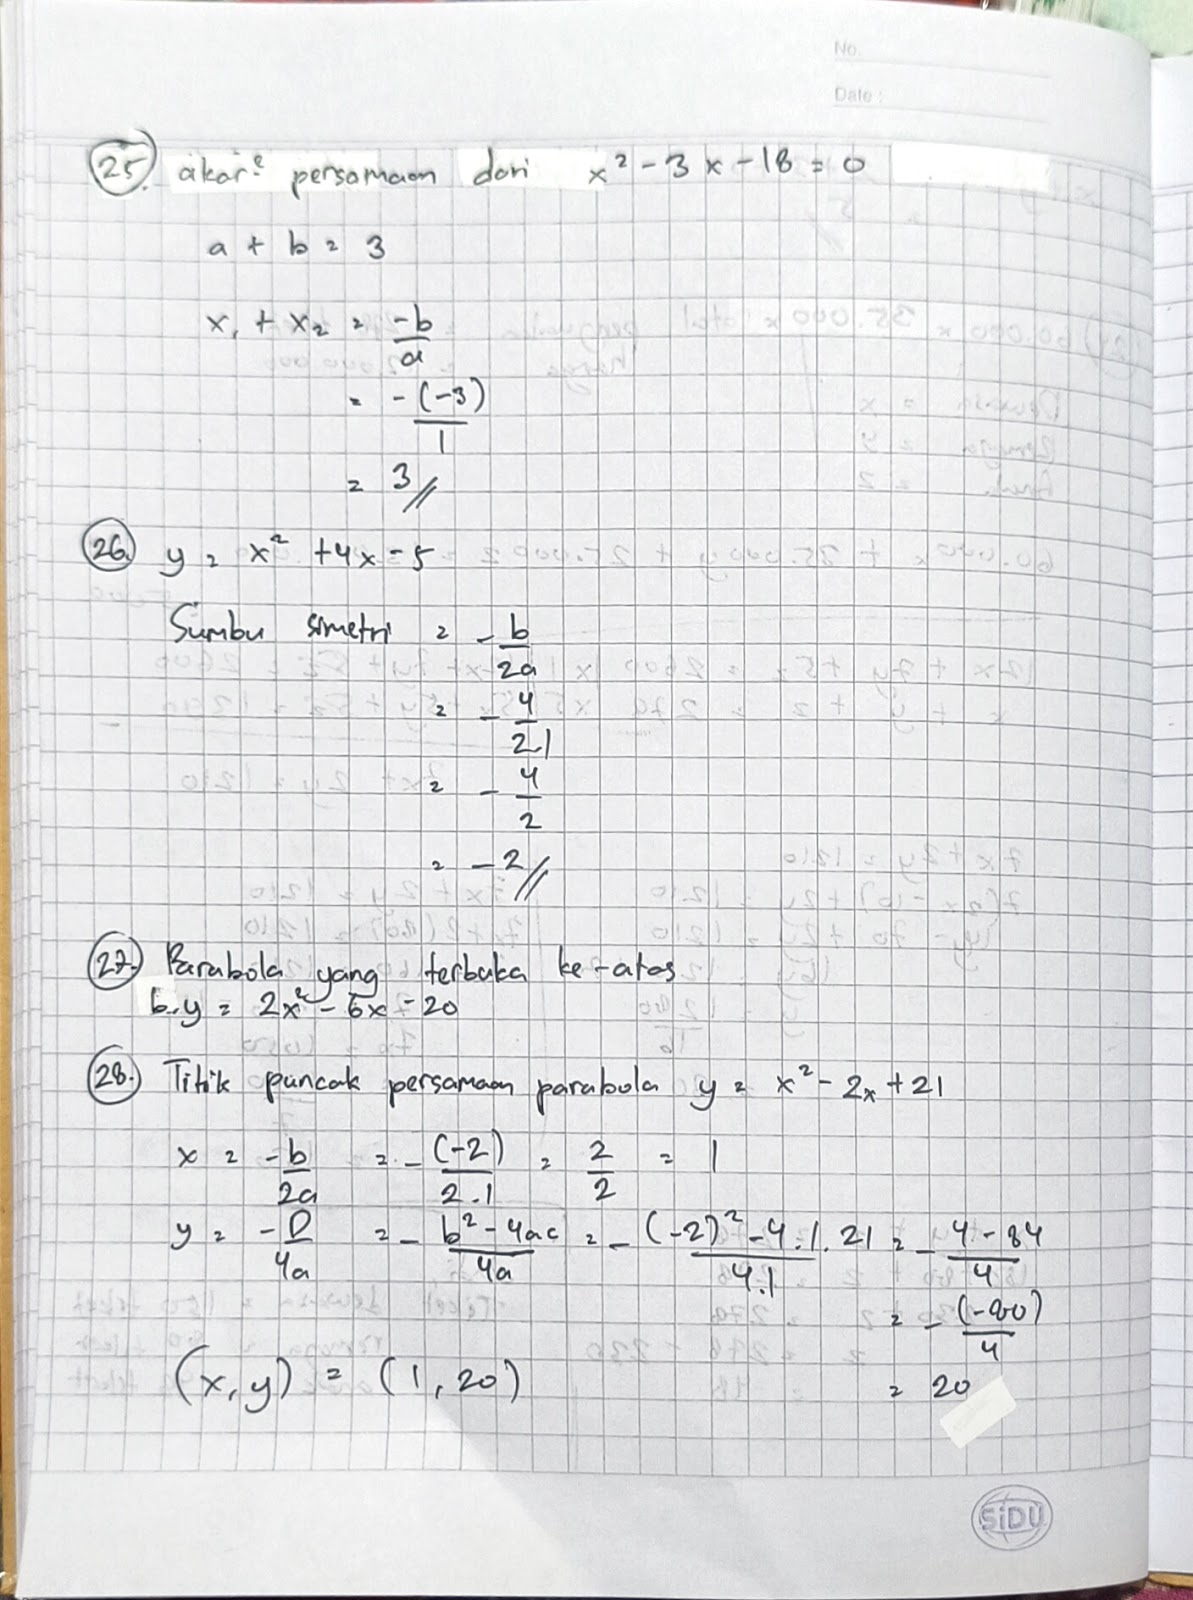 No.
Date :
25. akar² persamaan dari x² - 3x - 18 = 0
a + b = 3
x₁ + x₂ = -b/a
= -(-3)/1
= 3 //
26. y = x² + 4x - 5
Sumbu simetri = - b/2a
= - 4/2.1
= - 4/2
= - 2 //
27. Parabola yang terbuka ke-atas
b. y = 2x² - 6x - 20
28. Titik puncak persamaan parabola y = x² - 2x + 21
x = -b/2a = - (-2)/2.1 = 2/2 = 1
y = -D/4a = - b² - 4ac/4a = - (-2)² - 4.1.21/4.1 = - 4 - 84/4
= - (-80)/4
(x, y) = (1, 20) = 20
SiDU